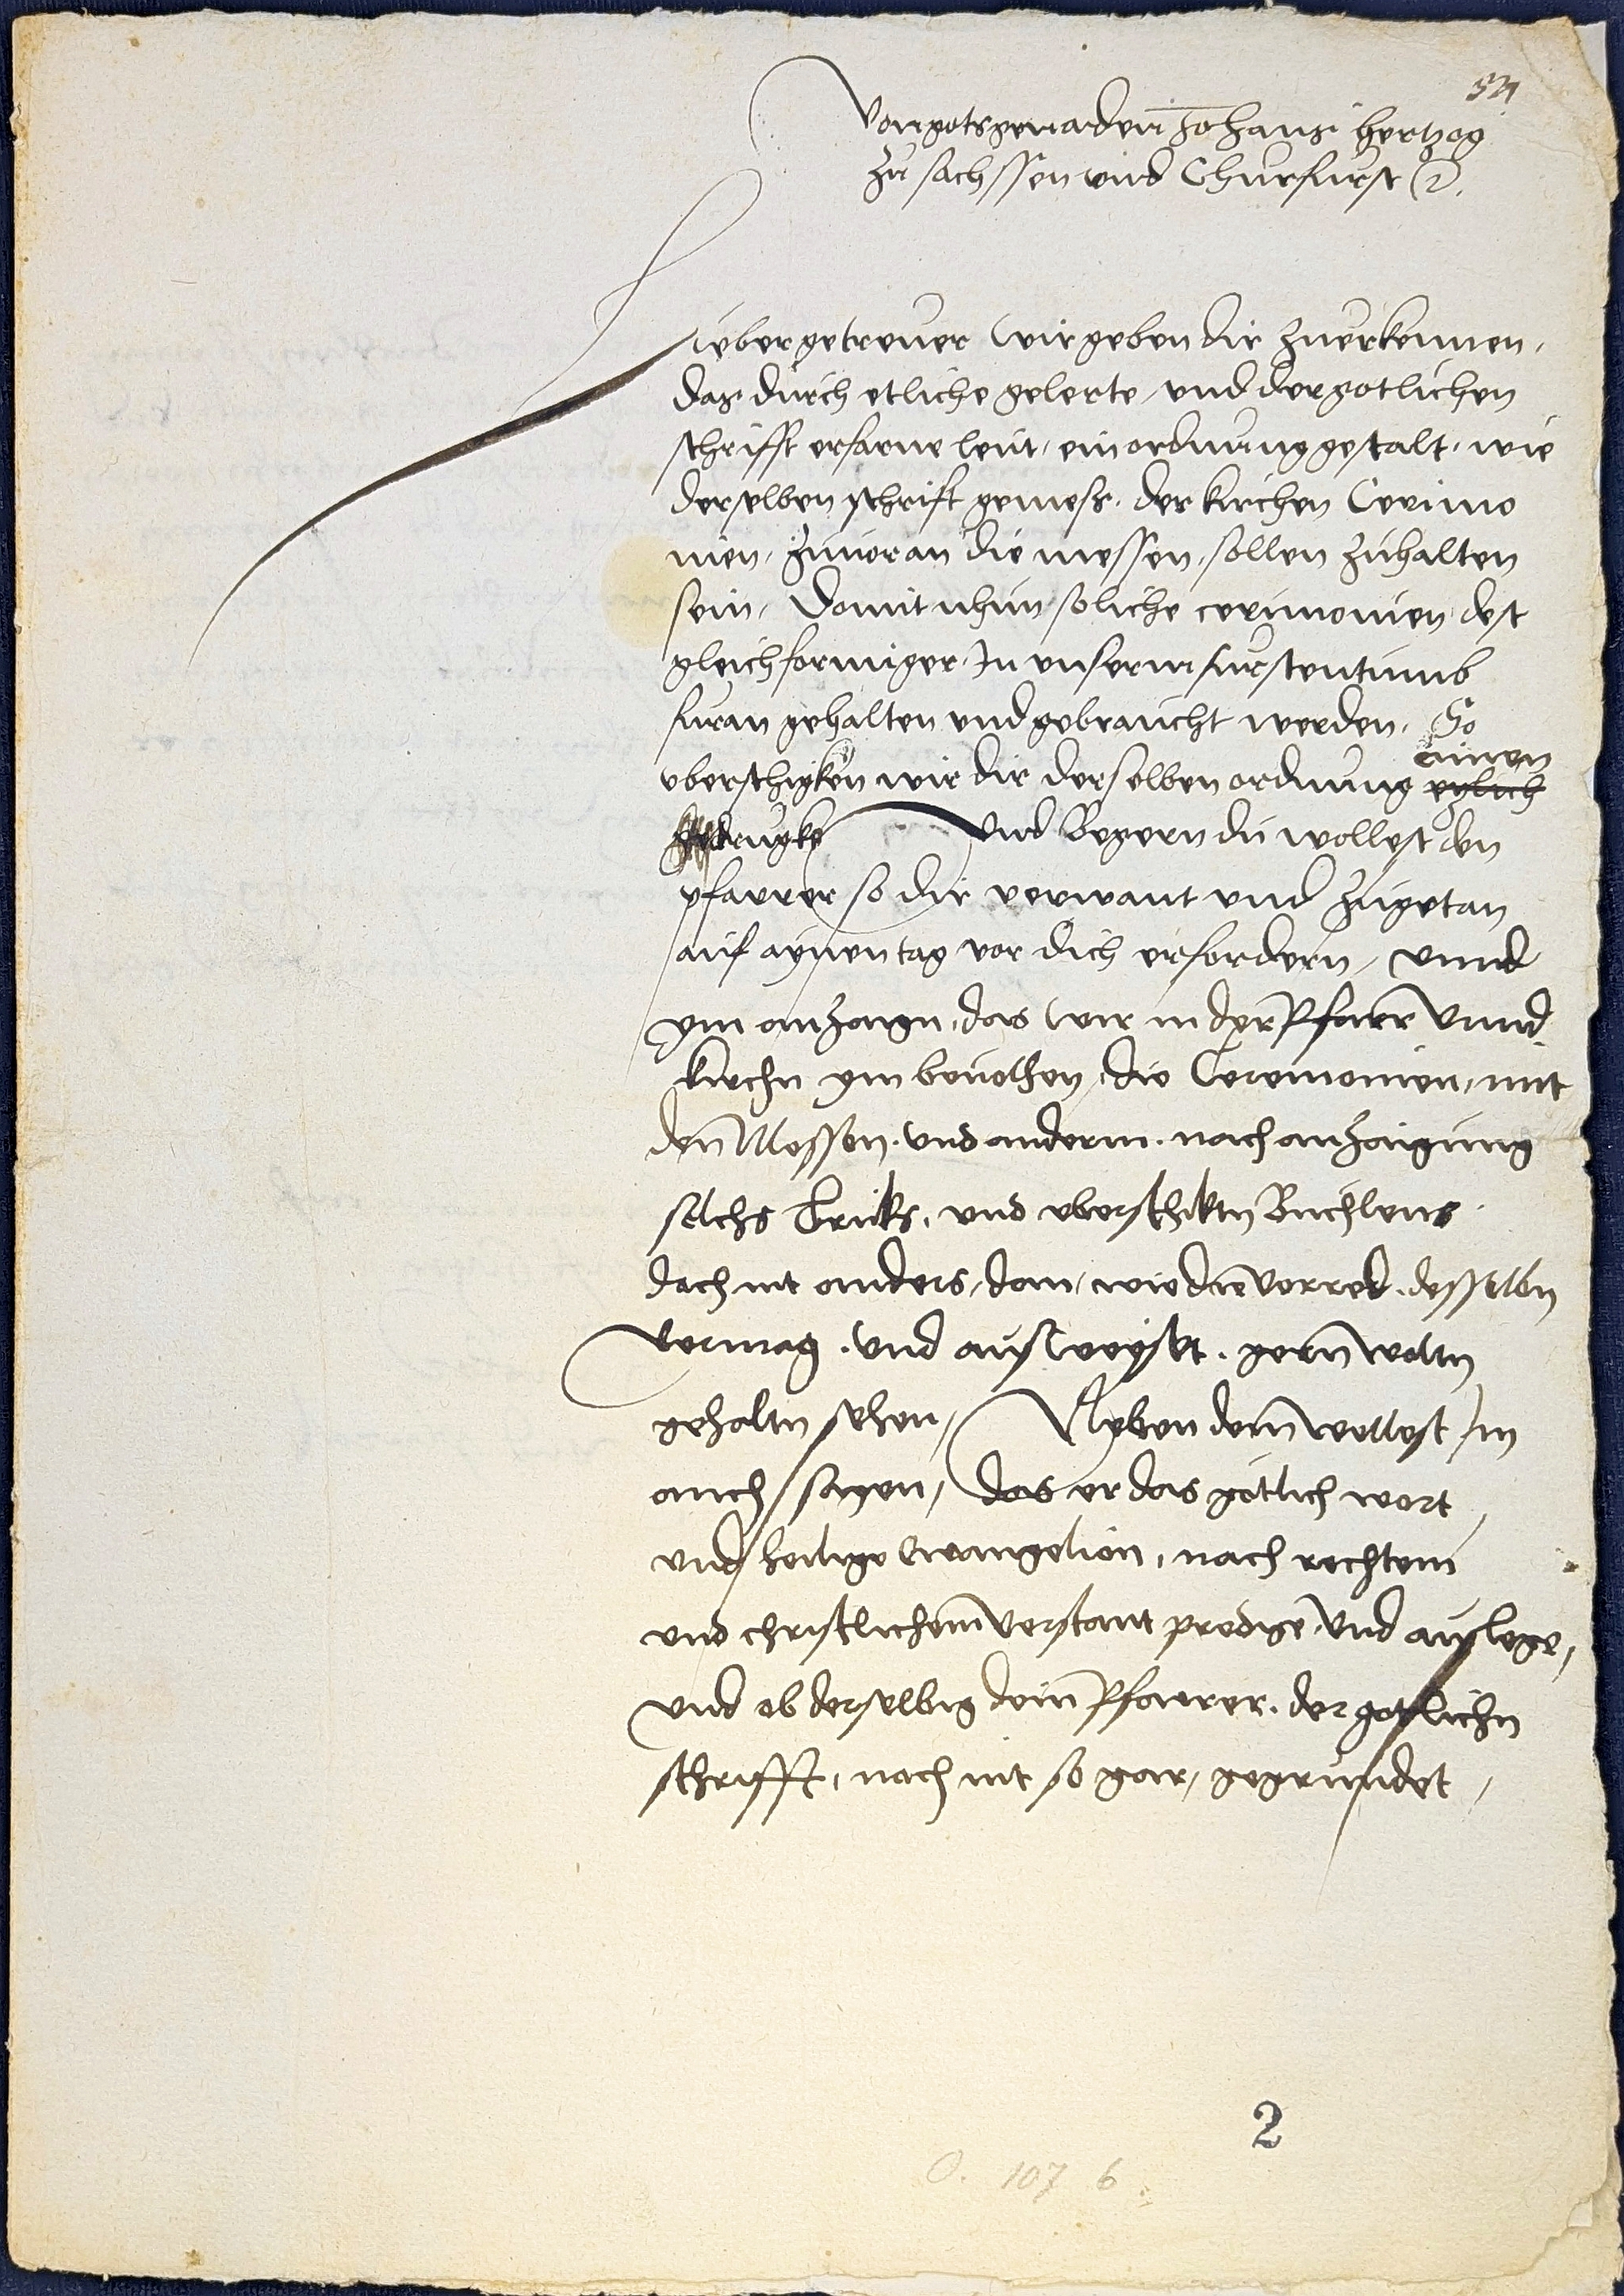 Von gots genaden Johans hertzog
zu sachssen vnd Churfurst ꝛc.
Lieber getrewer wir geben dir zuerkennen,
das durch etliche gelerte, vnd der gotlichen
schrifft erfarne leut, ein ordnung gestalt, wie
derselben schrifft gemess, der kirchen Cerimo
nien, zuuoran die messen, sollen zuhalten
sein, Domit nhun soliche cerimonien dest
gleichformiger, In vnserm furstentumb
furan gehalten vnd gebraucht werden, So
einen
vberschigken wir dir derselben ordnung etzlich
gedrugkt Vnd Begern du wollest den
pfarrer so dir verwant vnd zugetan
auf aynen tag vor dich erfordern, vnnd
ym anzaign, das wir in der Pfarr vnnd
kirchn ym beuolhen, die Ceremonien, mit
den Messen, vnd anderm, nach anzaigung
solchs Druks, vnd vberschiktn Buchlens
doch nit anders, dan, wie die vorred, desselbn
vermag, vnd ausweyset, gern woltn
gehaltn sehen, Neben dem wollest Im
auch sagen, das er das gotlich wort
vnd heilige Ewangelion, nach rechtem
vnd christlichem verstant predige vnd auslege,
vnd ob derselbig dein Pfarrer, der gotlichn
schrifft, noch nit so gar, gegrundet,
2
O. 107 6